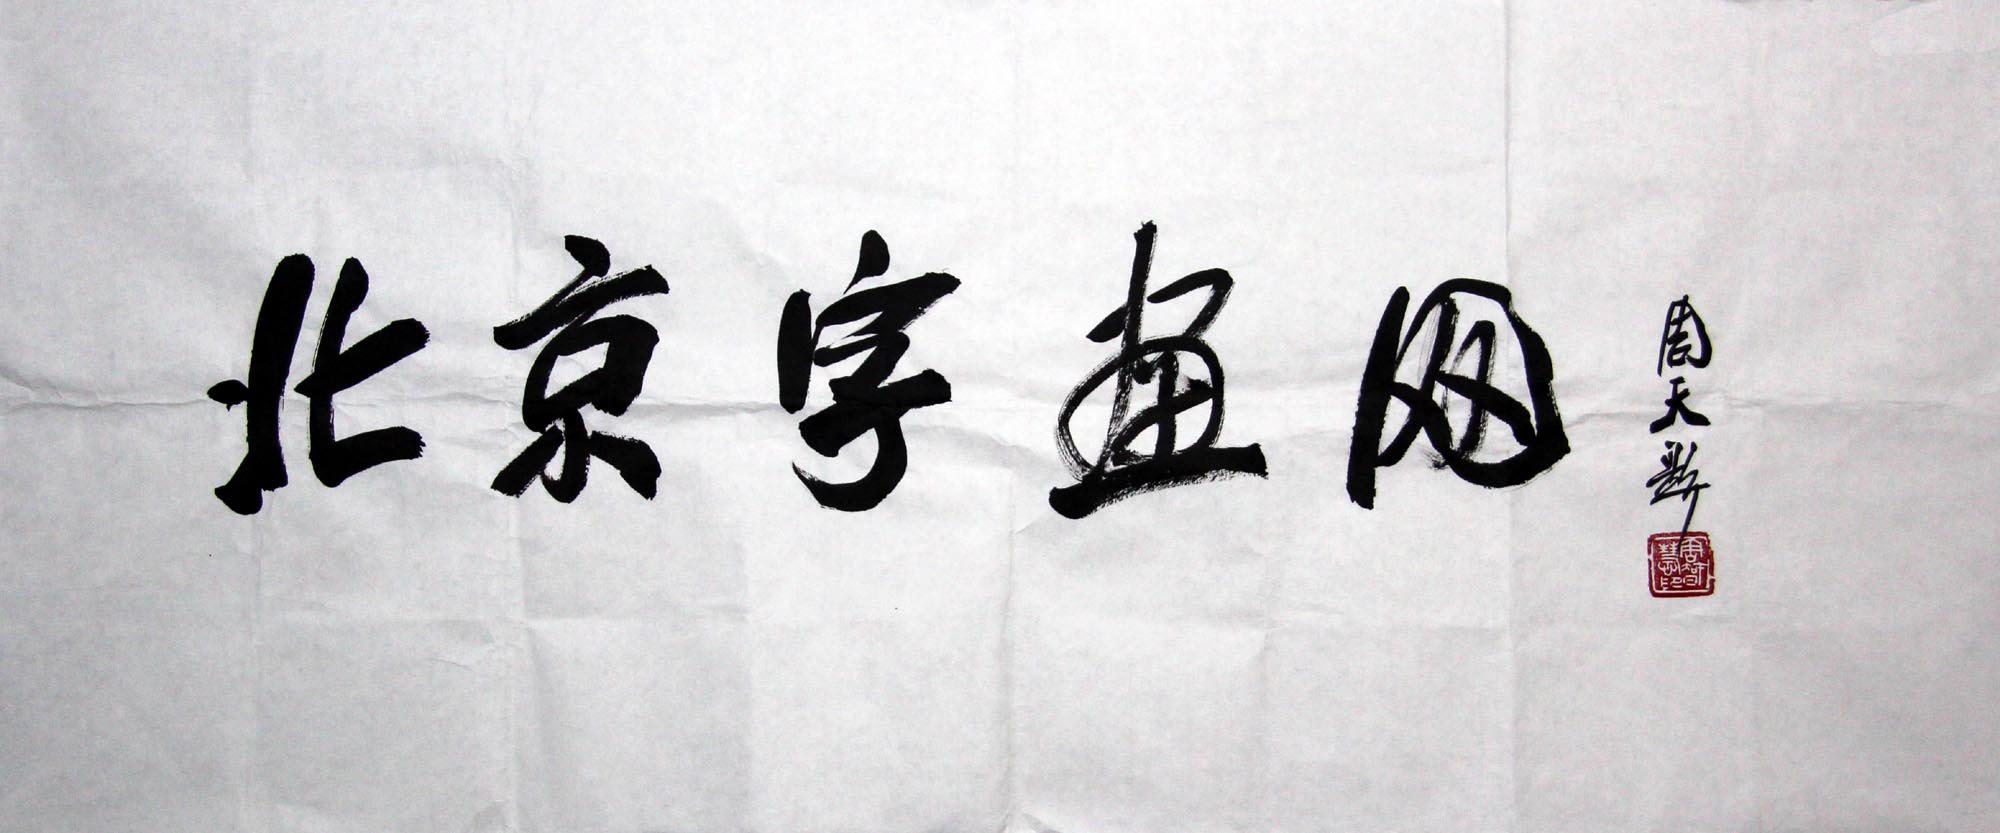 北京字画网
周天